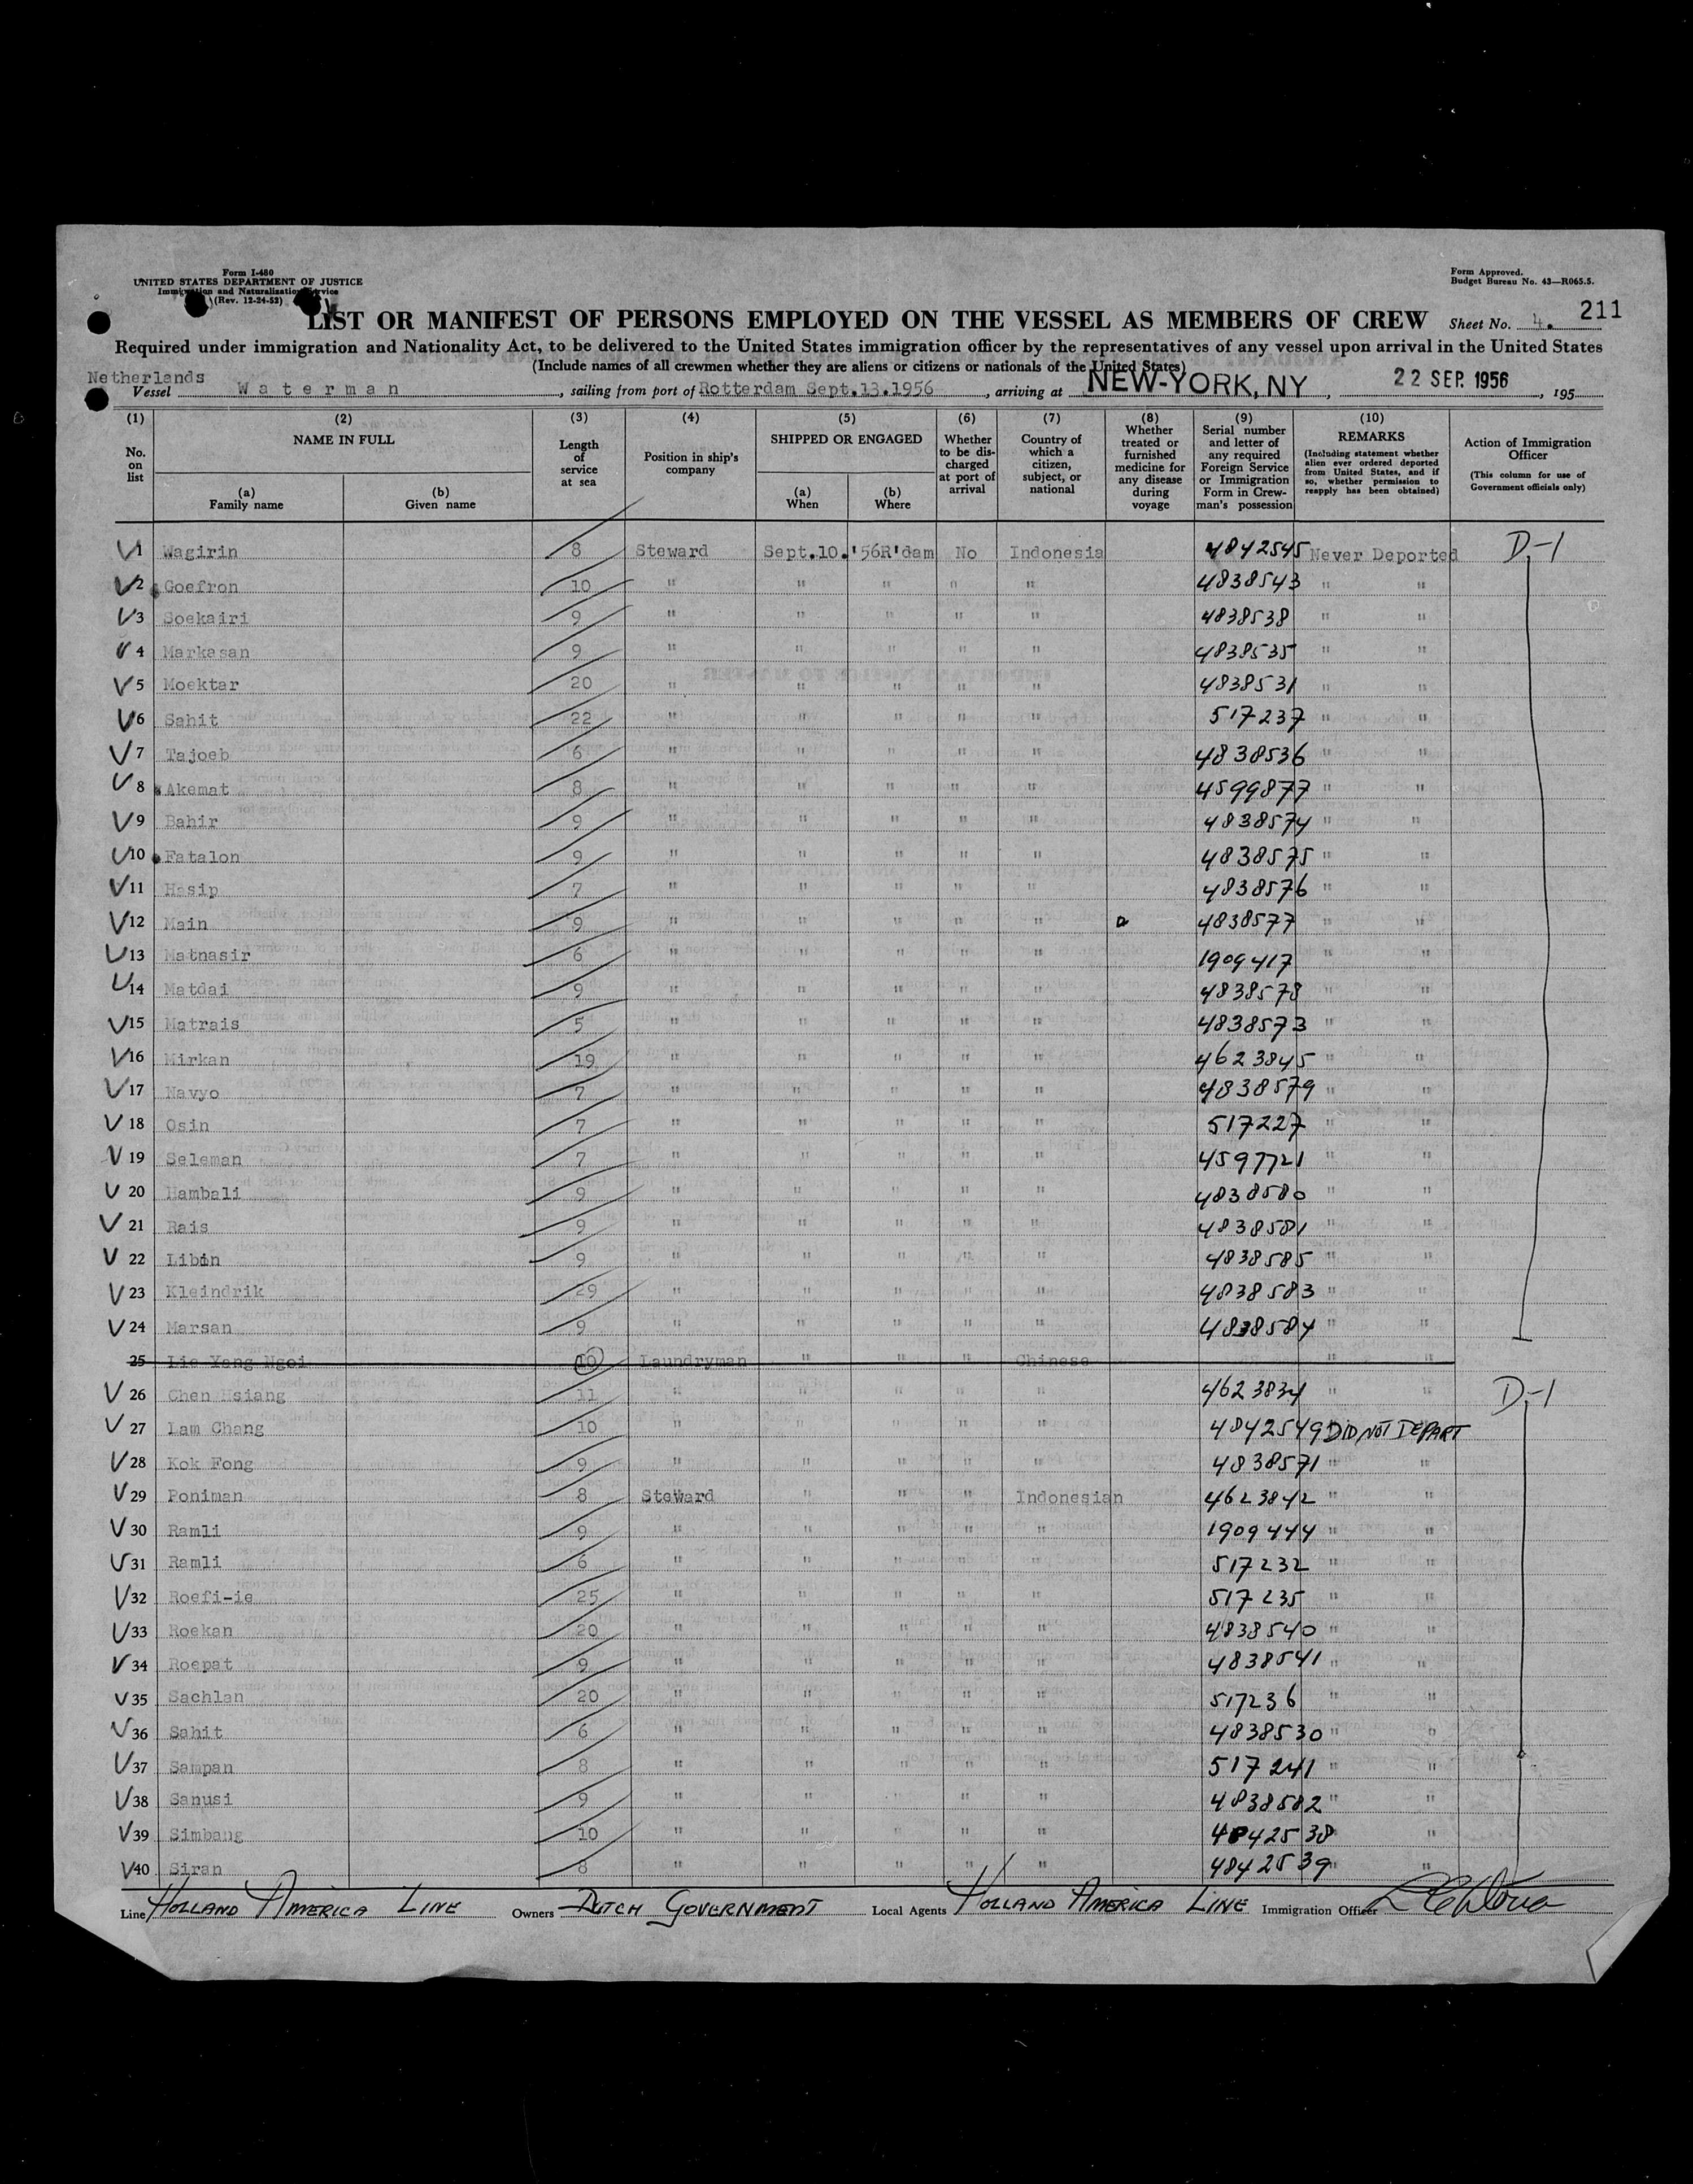 Form I-480
UNITED STATES DEPARTMENT OF JUSTICE
Immigration and Naturalization Service
(Rev. 12-24-52)
Form Approved.
Budget Bureau No. 43—R065.5.
LIST OR MANIFEST OF PERSONS EMPLOYED ON THE VESSEL AS MEMBERS OF CREW Sheet No. 4. 211
Required under immigration and Nationality Act, to be delivered to the United States immigration officer by the representatives of any vessel upon arrival in the United States
(Include names of all crewmen whether they are aliens or citizens or nationals of the United States)
Netherlands
Vessel Waterman, sailing from port of Rotterdam Sept.13.1956, arriving at NEW-YORK, NY, 22 SEP. 1956, 195
(1) No. on list
(2) NAME IN FULL
(a) Family name
(b) Given name
(3) Length of service at sea
(4) Position in ship's company
(5) SHIPPED OR ENGAGED
(a) When
(b) Where
(6) Whether to be discharged at port of arrival
(7) Country of which a citizen, subject, or national
(8) Whether treated or furnished medicine for any disease during voyage
(9) Serial number and letter of any required Foreign Service or Immigration Form in Crewman's possession
(10) REMARKS
(Including statement whether alien ever ordered deported from United States, and if so, whether permission to reapply has been obtained)
Action of Immigration Officer
(This column for use of Government officials only)
V 1 Wagirin 8 Steward Sept.10.'56 R'dam No Indonesia 4842545 Never Deported D-1
V 2 Goefron 10 " " " " " 4838543 " "
V 3 Soekairi 9 " " " " " 4838538 " "
V 4 Markasan 9 " " " " " 4838535 " "
V 5 Moektar 20 " " " " " 4838531 " "
V 6 Sahit 22 " " " " " 517237 " "
V 7 Tajoeb 6 " " " " " 4838536 " "
V 8 Akemat 8 " " " " " 4599877 " "
V 9 Bahir 9 " " " " " 4838574 " "
V 10 Fatalon 9 " " " " " 4838575 " "
V 11 Hasip 7 " " " " " 4838576 " "
V 12 Main 9 " " " " " 4838577 " "
V 13 Matnasir 6 " " " " " 1909417 " "
V 14 Matdai 9 " " " " " 4838578 " "
V 15 Matrais 5 " " " " " 4838573 " "
V 16 Mirkan 19 " " " " " 4623845 " "
V 17 Navyo 7 " " " " " 4838579 " "
V 18 Osin 7 " " " " " 517227 " "
V 19 Seleman 7 " " " " " 4597721 " "
V 20 Hambali 9 " " " " " 4838580 " "
V 21 Rais 9 " " " " " 4838581 " "
V 22 Libin 9 " " " " " 4838585 " "
V 23 Kleindrik 29 " " " " " 4838583 " "
V 24 Marsan 9 " " " " " 4838584 " "
25 Lie Yang Ngoi 10 Laundryman " " " Chinese " "
V 26 Chen Hsiang 11 " " " " " 4623834 " " D-1
V 27 Lam Chang 10 " " " " " 4842549 DID NOT DEPART
V 28 Kok Fong 9 " " " " " 4838571 " "
V 29 Poniman 8 Steward " " " Indonesian 4623842 " "
V 30 Ramli 9 " " " " " 1909444 " "
V 31 Ramli 6 " " " " " 517232 " "
V 32 Roefi-ie 25 " " " " " 517235 " "
V 33 Roekan 20 " " " " " 4838540 " "
V 34 Roepat 9 " " " " " 4838541 " "
V 35 Sachlan 20 " " " " " 517236 " "
V 36 Sahit 6 " " " " " 4838530 " "
V 37 Sampan 8 " " " " " 517241 " "
V 38 Sanusi 9 " " " " " 4838582 " "
V 39 Simbang 10 " " " " " 4842538 " "
V 40 Siran 8 " " " " " 4842539 " "
Line HOLLAND AMERICA LINE Owners DUTCH GOVERNMENT Local Agents HOLLAND AMERICA LINE Immigration Officer